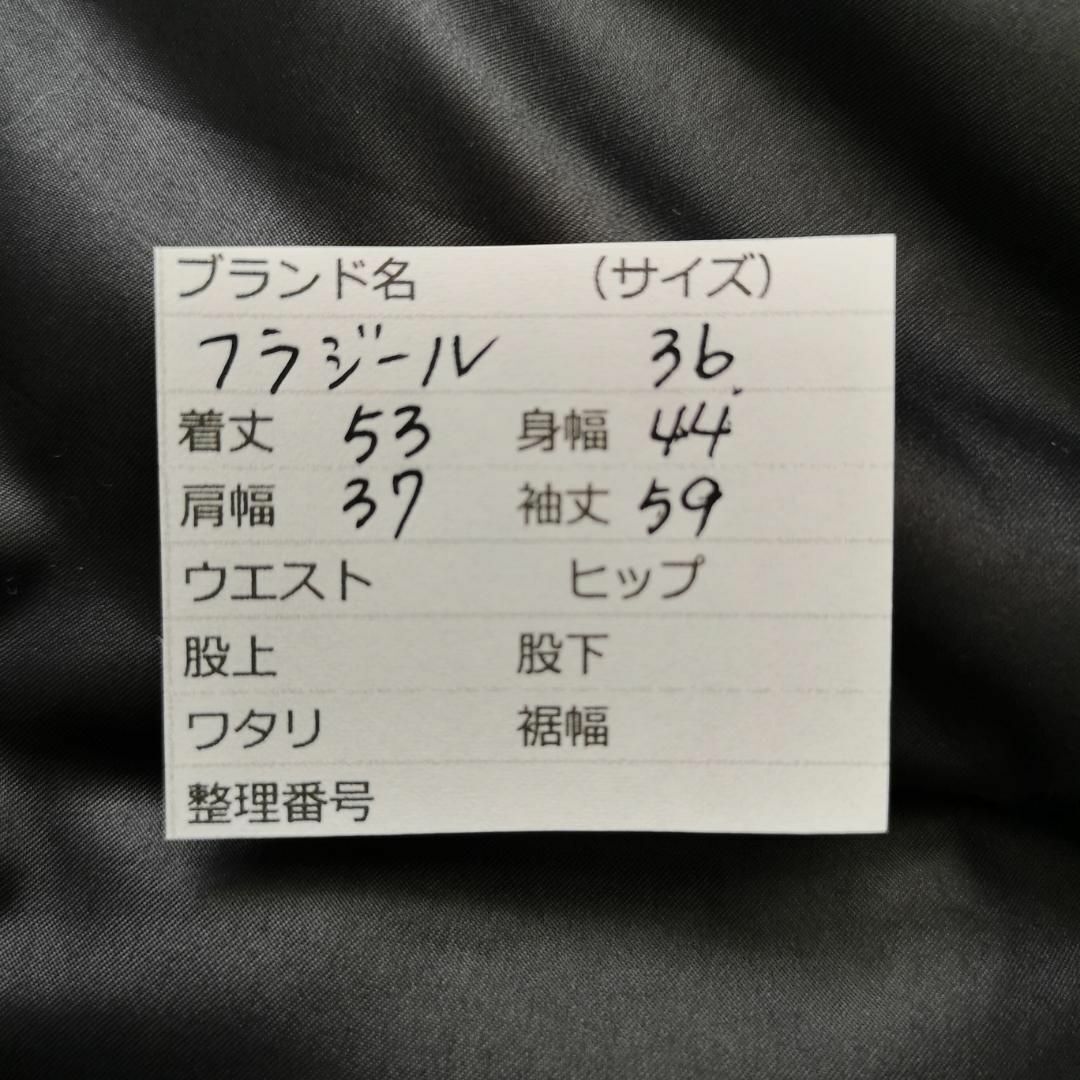 ブランド名 （サイズ）
フラジール 36
着丈 53 身幅 44
肩幅 37 袖丈 59
ウエスト ヒップ
股上 股下
ワタリ 裾幅
整理番号